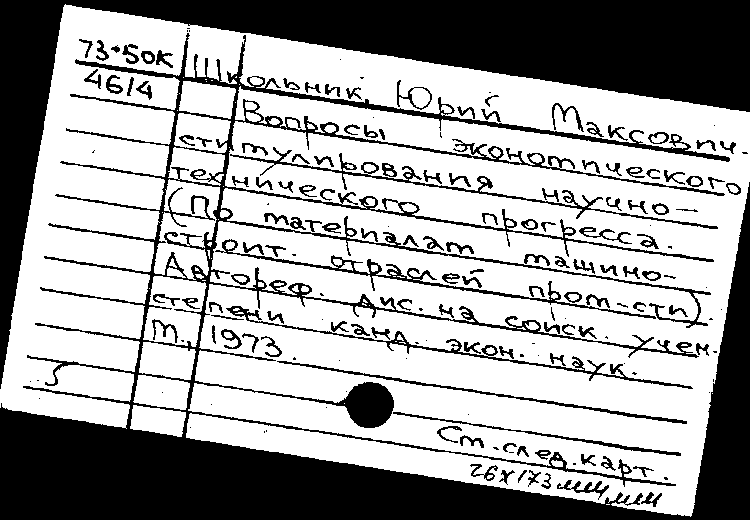 73-50К
4614
Школьник, Юрий Максович.
Вопросы экономического
стимулирования научно-
технического прогресса.
(По материалам машино-
строит. отраслей пром-сти).
Автореф. дис. на соиск. учен.
степени канд. экон. наук.
М., 1973.
5
См. след. карт.